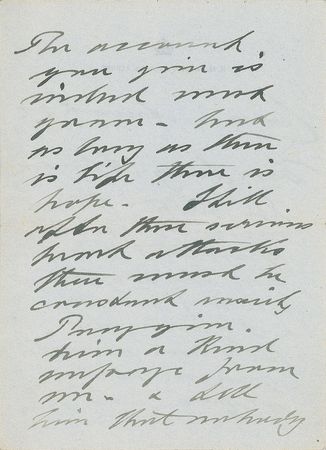 The account
you give is
indeed most
grave - but
as long as there
is life there is
hope. Still
after three serious
heart attacks
there must be
constant anxiety
Pray give
him a kind
message from
me - & tell
him that nobody